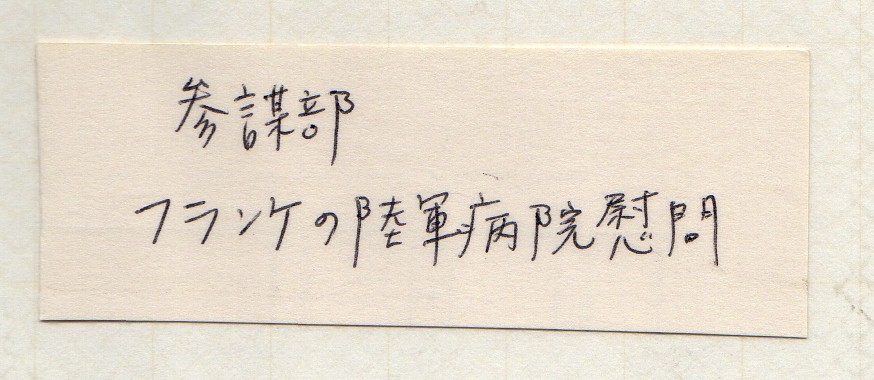 参謀部
フランケの陸軍病院慰問